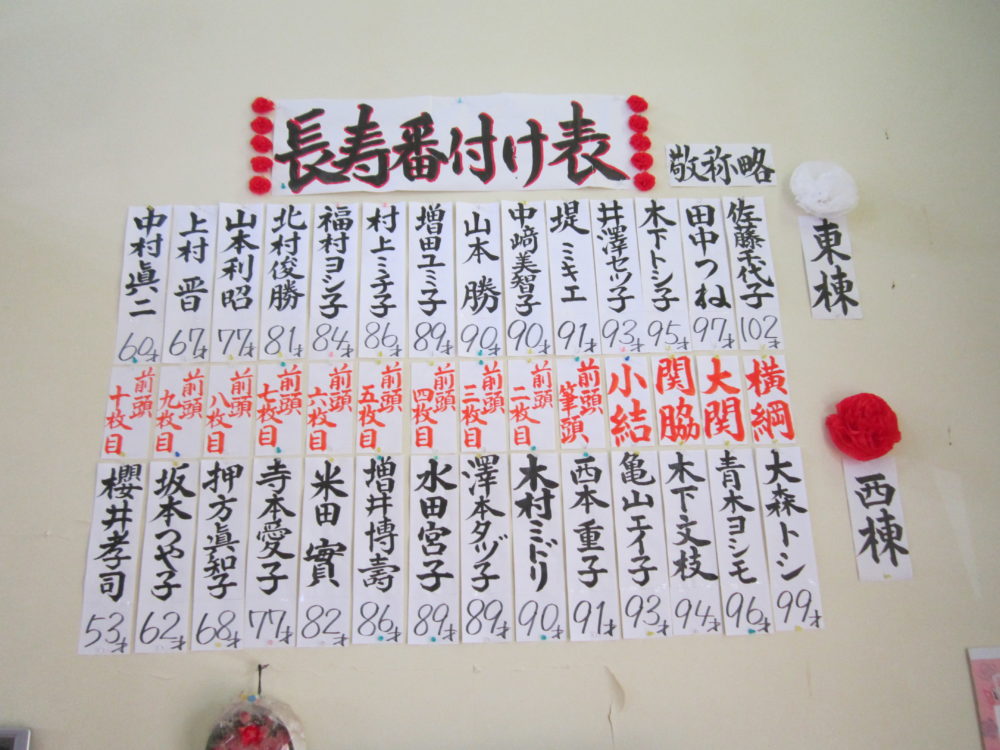 長寿番付け表
敬称略
東棟
佐藤千代子 102才
田中つね 97才
木下トシ子 95才
井澤セツ子 93才
堤ミキエ 91才
中﨑美智子 90才
山本勝 90才
増田ユミ子 89才
村上ミチ子 86才
福村ヨシ子 84才
北村俊勝 81才
山本利昭 77才
上村晋 67才
中村眞二 60才
横綱
大関
関脇
小結
前頭筆頭
前頭二枚目
前頭三枚目
前頭四枚目
前頭五枚目
前頭六枚目
前頭七枚目
前頭八枚目
前頭九枚目
前頭十枚目
西棟
大森トシ 99才
青木ヨシモ 96才
木下文枝 94才
亀山エイ子 93才
西本重子 91才
木村ミドリ 90才
澤本タヅ子 89才
水田宮子 89才
増井博壽 86才
米田實 82才
寺本愛子 77才
押方眞知子 68才
坂本つや子 62才
櫻井孝司 53才